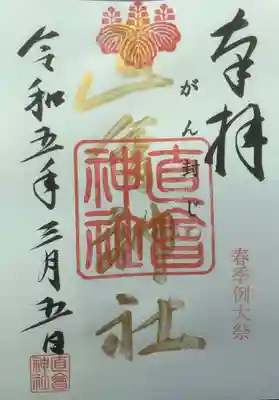 奉拝
春季例大祭
がん封じ
神社
直會神社
令和五年三月五日
直會神社